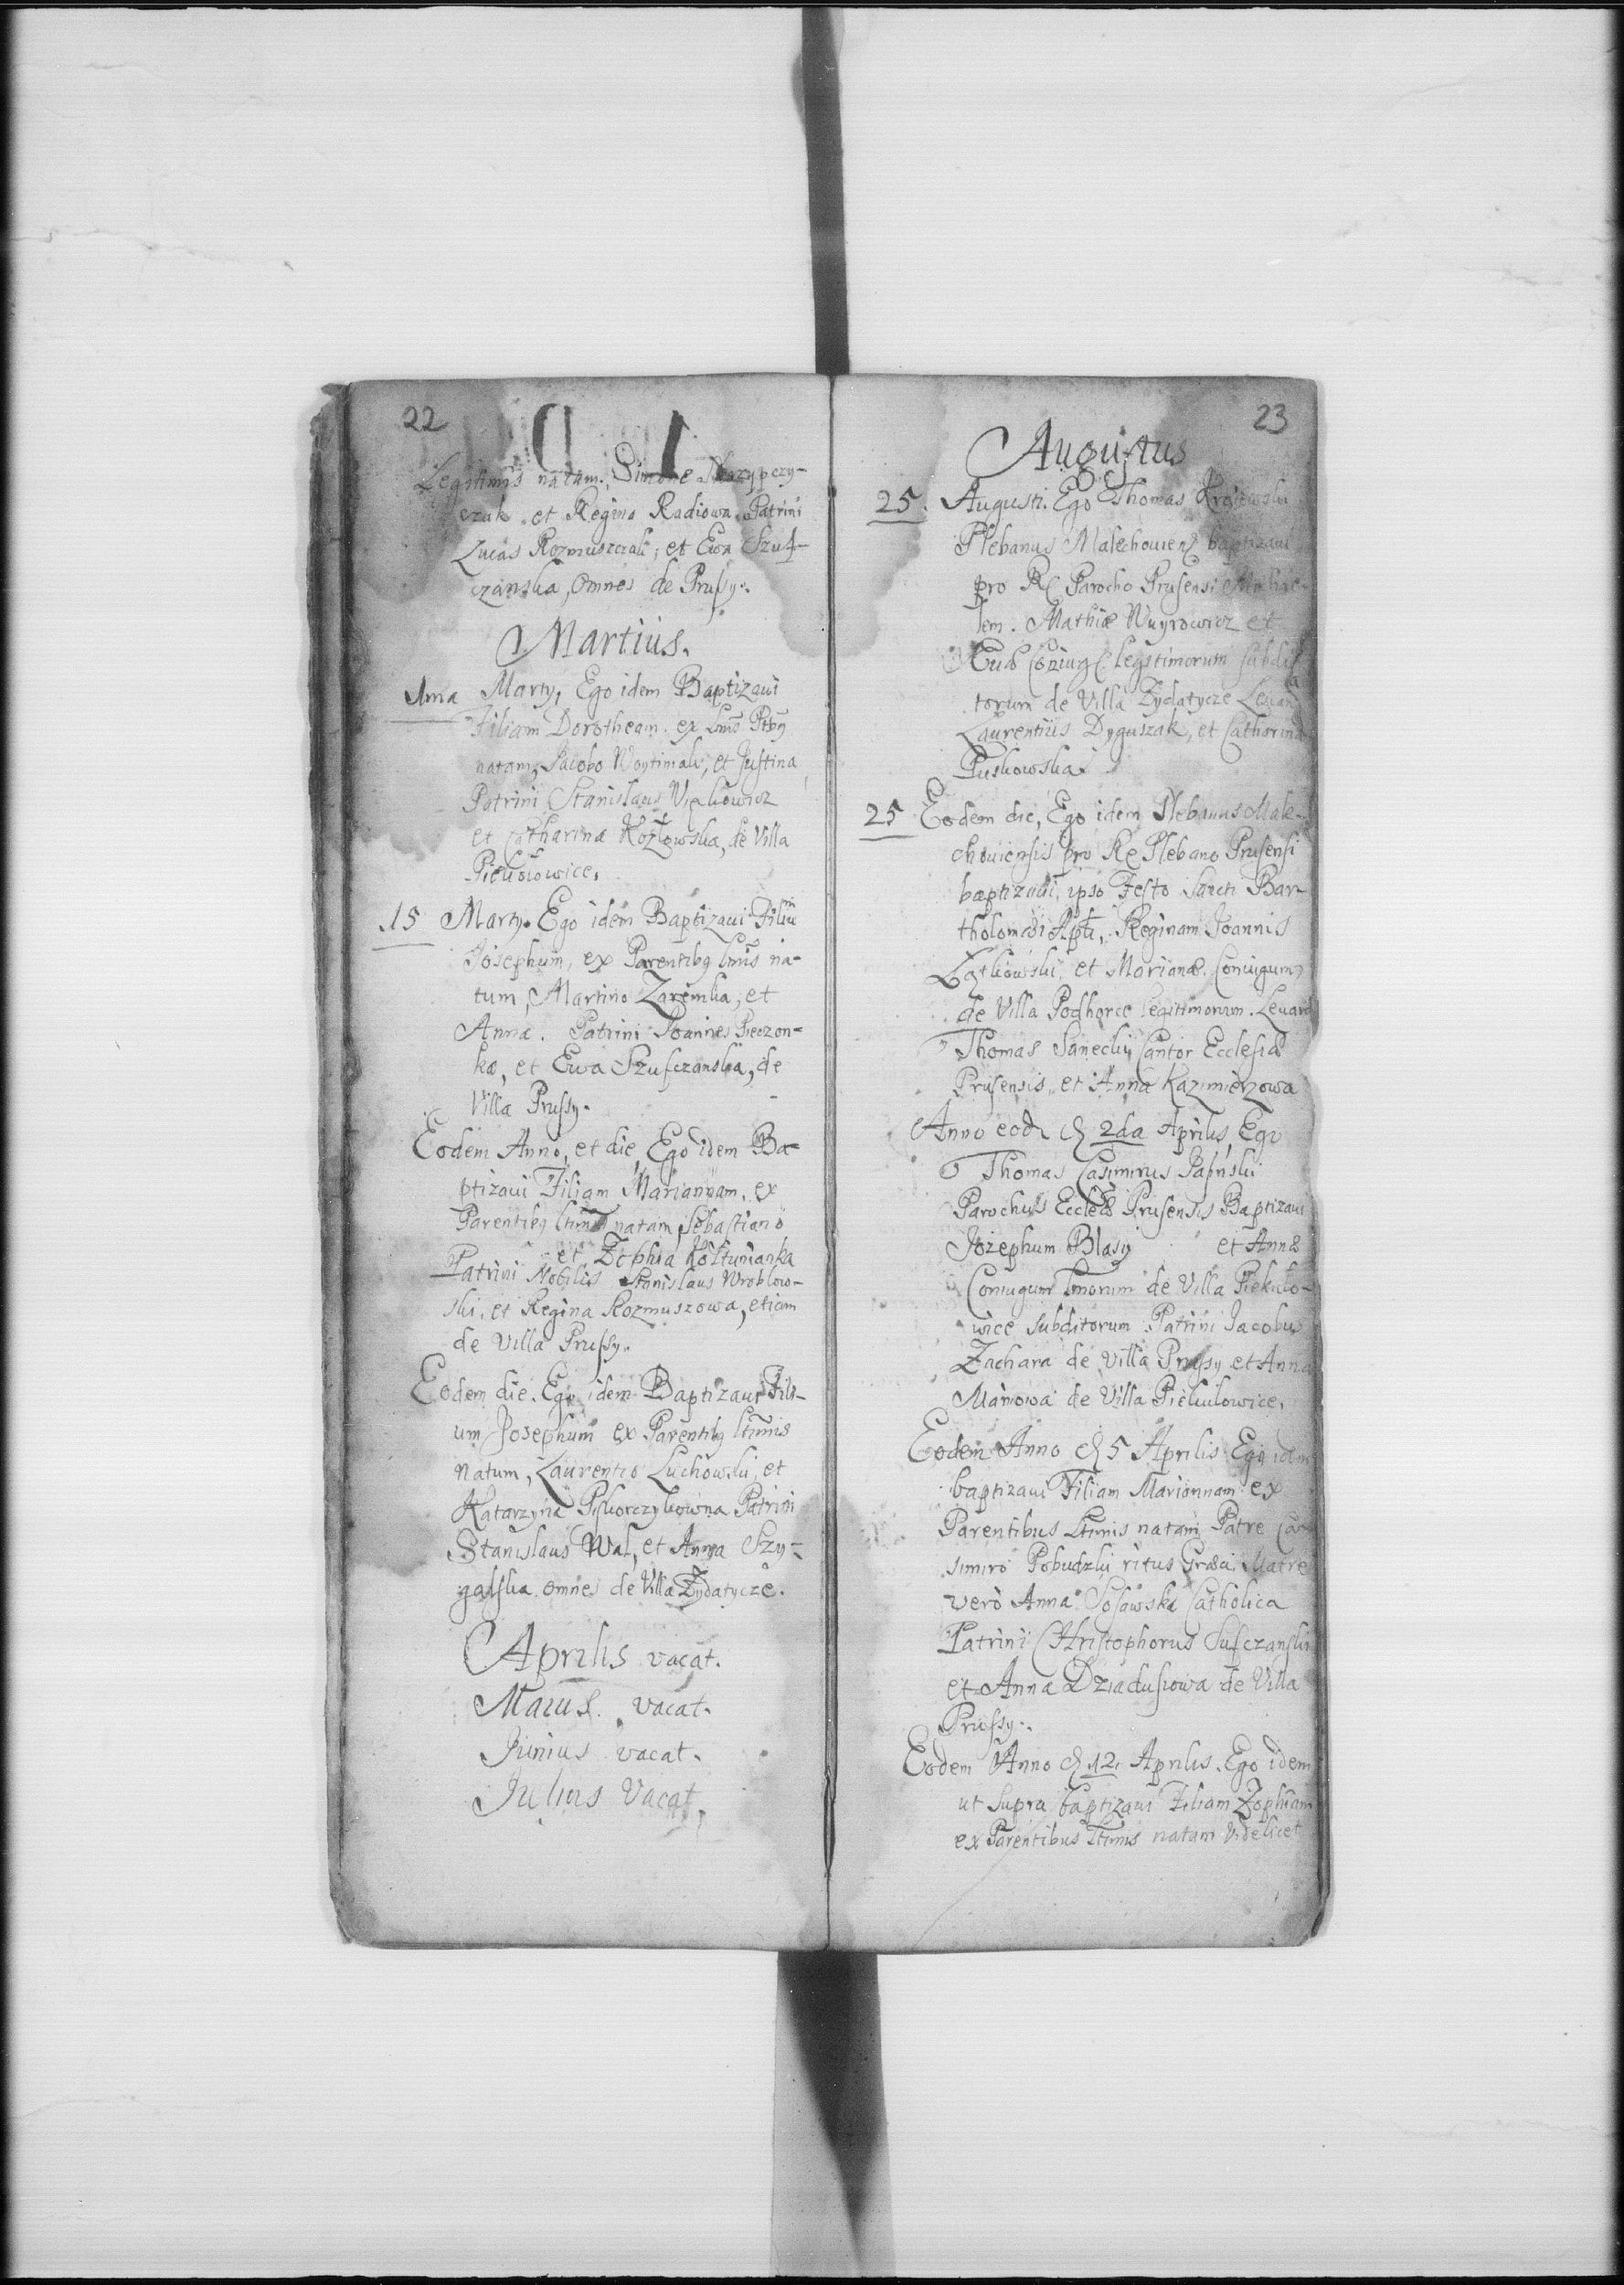 22
Legitimis natam, Simone
czak et Regina Radiowa Patrini
Lucas Rozmuszczak, et Ewa Szuf-
czanska, Omnes de Prussy.
Martius.
1ma Marty, Ego idem Baptizavi
Filiam Dorotheam ex
natam, Jacobo Woytimak, et Justina
Patrini Stanislaus
et Catharina Kozłowska, de Villa
15 Marty. Ego idem Baptizavi Filiu
Josephum, ex Parentibq ltmis na-
tum, Martino Zaremka, et
Anna. Patrini Joannes Pieczon-
ka, et Ewa Szufczanska, de
Villa Prussy.
Eodem Anno, et die, Ego idem Ba-
ptizavi Filiam Mariannam, ex
Parentibq ltimis natam, Sebastiano
et Zophia Kołtunianka
Patrini Nobilis Stanislaus Wroblow-
ski, et Regina Rozmuszowa, etiam
de Villa Prussy.
Eodem die. Ego idem Baptizavi Fili-
um Josephum ex Parentibq ltimis
natum, Laurentio Luchowski, et
Katarzyna Piskorczykowna Patrini
Stanislaus Wal, et Anna Szy-
galska omnes de Villa Zydatycze.
Aprilis vacat.
Maius vacat.
Junius vacat.
Julius Vacat
23
Augustus
25. Augusti. Ego Thomas
Plebanus Malechowien baptizavi
pro R Parocho Prusensi Michae-
lem. Mathiæ Wuyrowicz et
Evæ Coniug legitimorum subdi-
torum de Villa Zydatycze Levan
Laurentius Dyguszak, et Catharina
Puskowska
25 Eodem die, Ego idem Plebanus Male-
choviensis pro R Plebano Prusensi
baptizavi, ipso Festo Sancti Bar-
tholomæi Apli, Reginam Joannis
et Marianæ Coniugum
de Villa Podhorce legitimorum. Levan
Thomas Sanecky Cantor Ecclesiæ
Prusensis et Anna Kazimierzowa
Anno eod d 2da Aprilis, Ego
Thomas Casimirus
Parochus Eccleæ Prusensis Baptizavi
Jozephum Blasy et Annæ
Coniugum ltmorum de Villa Piekulo-
wice subditorum Patrini Jacobus
Zachara de Villa Prussy et Anna
Maniowa de Villa Piekulowice.
Eodem Anno d 5 Aprilis Ego idem
baptizavi Filiam Mariannam ex
Parentibus Ltimis natam Patre Ca-
simiro Pobudzki ritus Græci, Matre
vero Anna Sosawska Catholica
Patrini Christophorus Sufczanski
et Anna Dziadusiowa de Villa
Prussy.
Eodem Anno d 12 Aprilis. Ego idem
ut supra baptizavi Filiam Zophiam
ex Parentibus ltimis natam videlicet